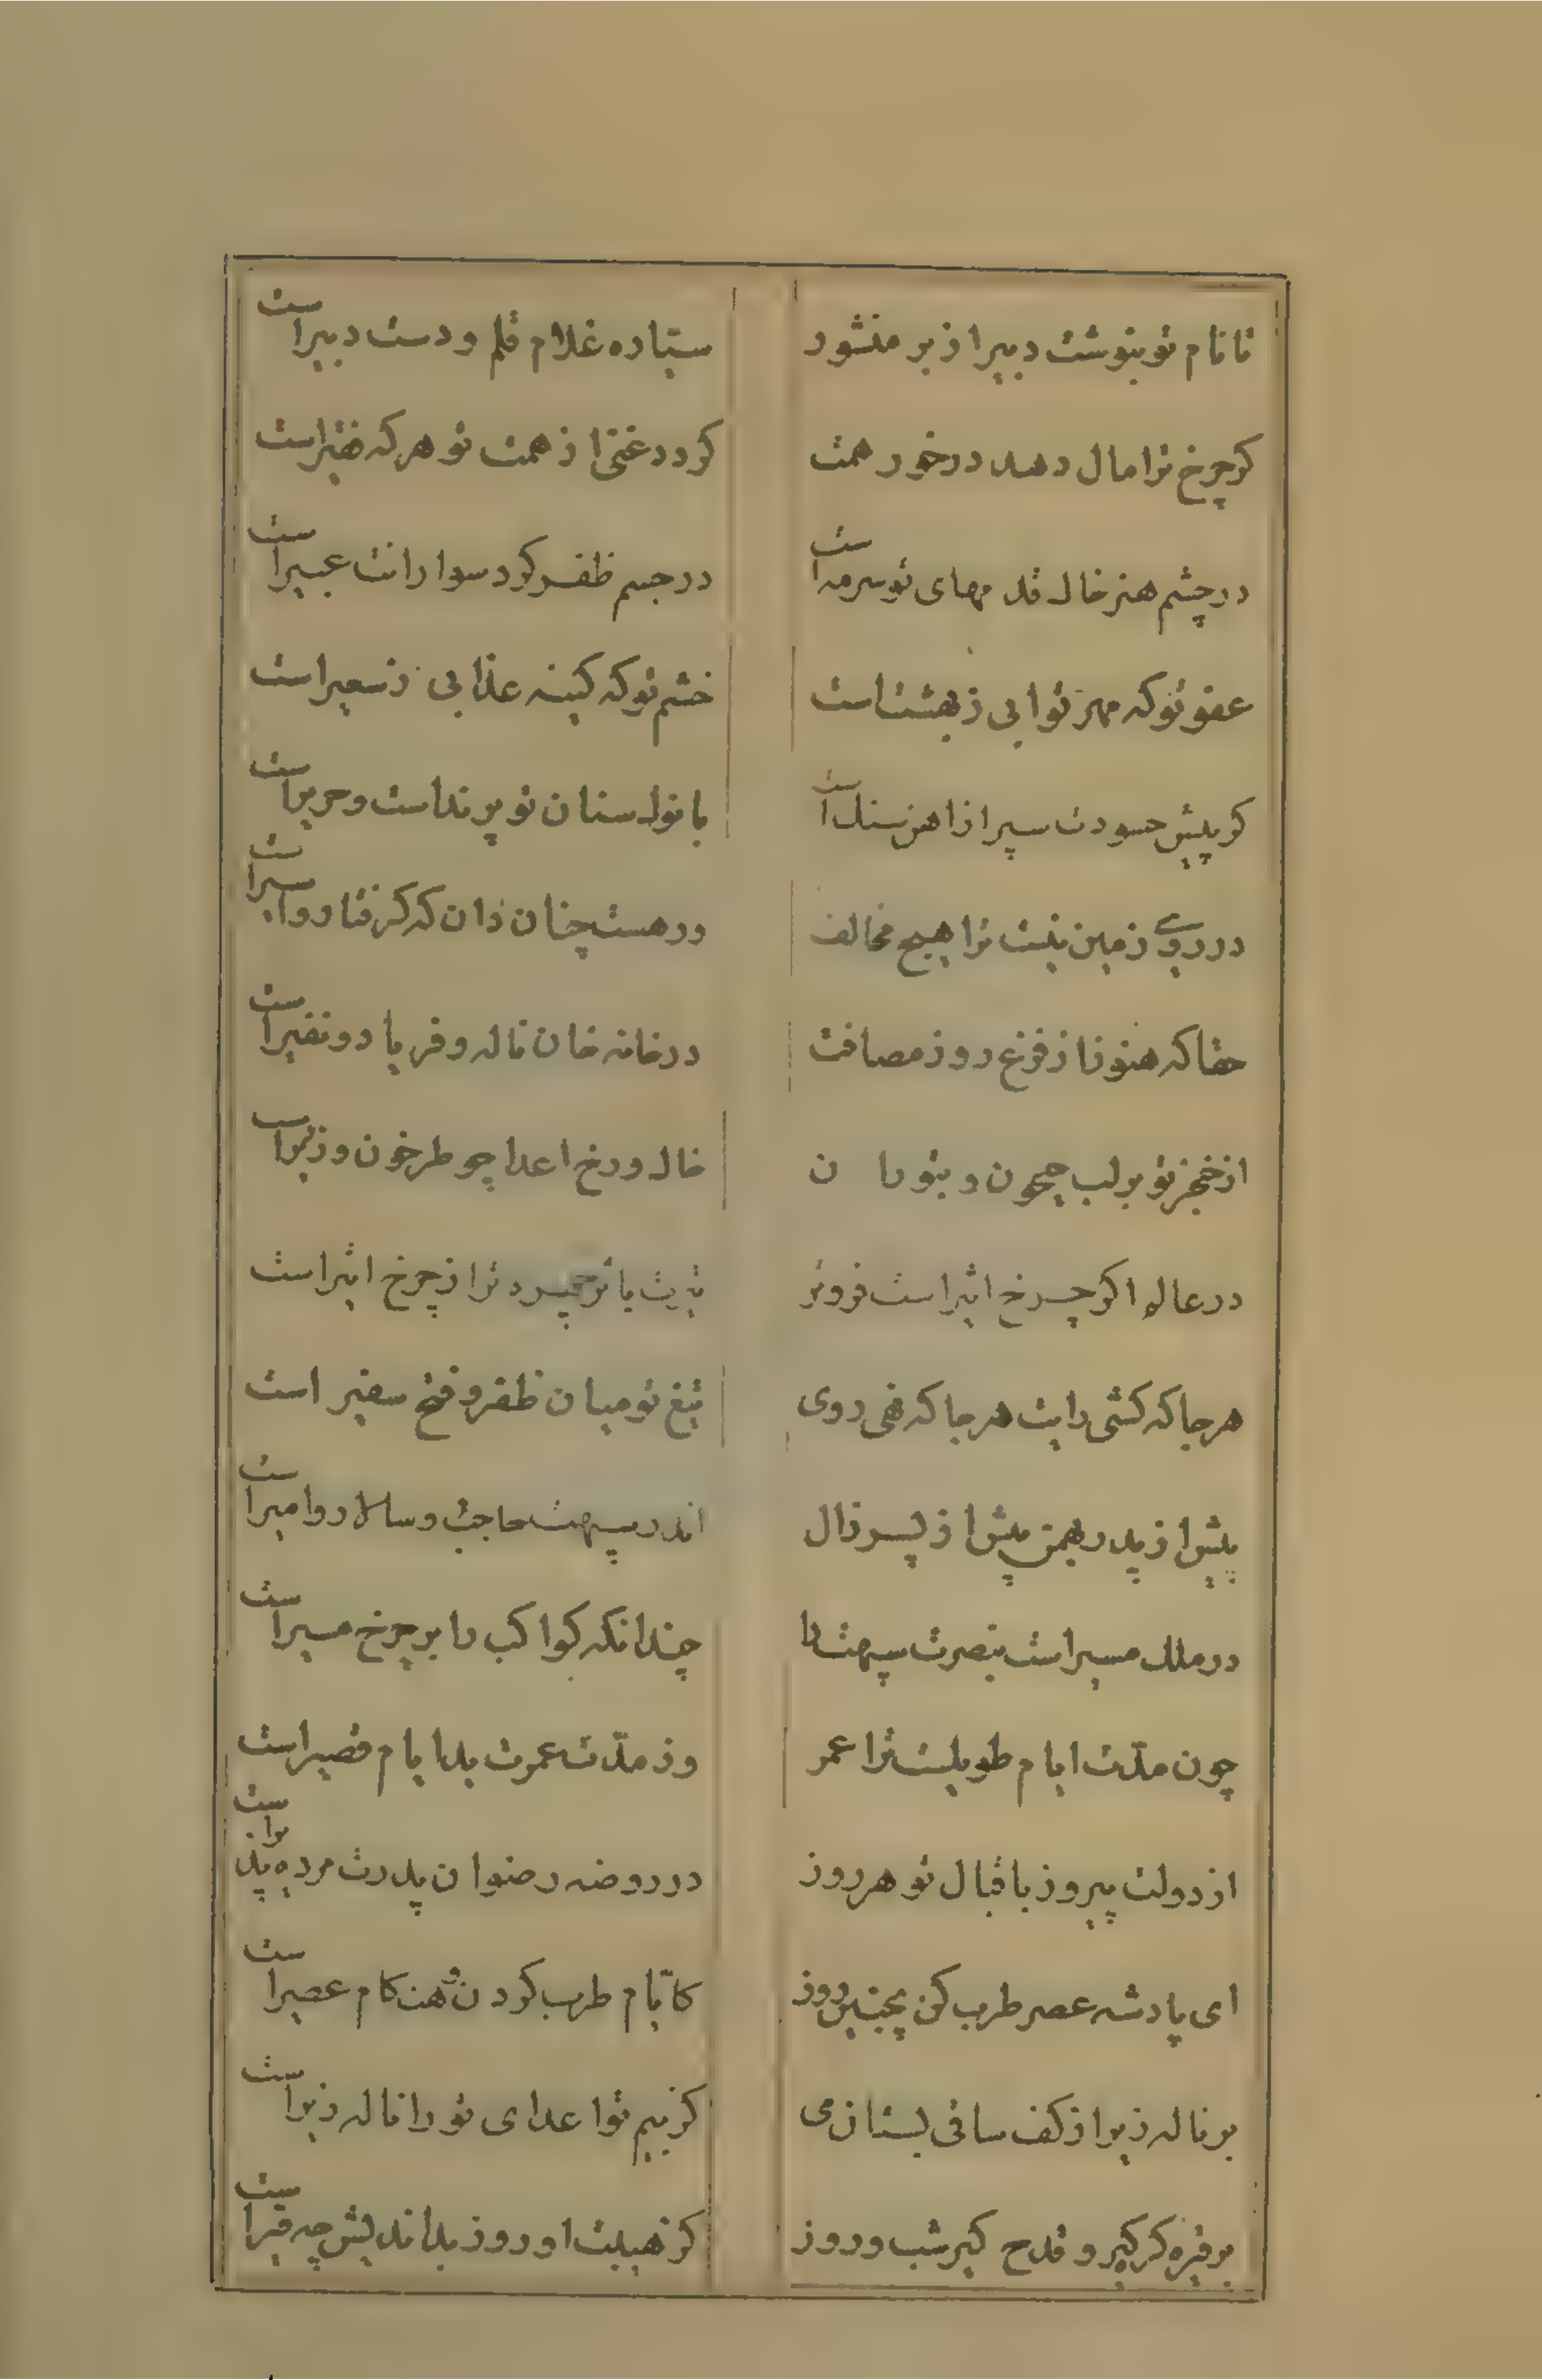 تا نام تو بنوشت دبیر از بر منشور
ستاده غلام قلم و دست دبیر است
کر چرخ ترا مال دهد در خور همت
کردد غنی از همت تو هر که فقیر است
در چشم هنر خاک قدمهای تو سرمه است
در جسم ظفر کرد سوارانت عبیر است
عفو تو که مهر ثوابی ز بهشت است
خشم تو که کینه عذابی ز سعیر است
کر پیش حسودت سپر از آهن و سنک است
با نوک سنان تو پرند است و حریر است
در روی زمین نیست ترا هیچ مخالف
ور هست چنان دان که کرفتار و اسیر است
حقا که هنوز از فزع روز مصافت
در خانه خان ناله و فریاد و نفیر است
از خنجر تو بر لب جیحون و بتوران
خاک و رخ اعدا چو طرخون و زریر است
در عالم اکر چرخ اثیر است فروتر
تاثیر ترا از چرخ اثیر است
هر جا که کشی رایت هر جا که نهی روی
تیغ تو میان ظفر و فتح سفیر است
پیش از پدر بهمن پیش از پسر زال
اندر سپهت حاجب و سالار و امیر است
در ملک مسیر است بنصرت سپهت را
چندانکه کواکب را بر چرخ مسیر است
چون مدت ایام طویلست ترا عمر
وز مدت عمرت بد ایام قصیر است
از دولت پیروز باقبال تو هر روز
در روضه رضوان پدرت مرده پذیر است
ای پادشه عصر طرب کن بچنین روز
کایام طرب کردن و هنکام عصیر است
بر ناله زیر از کف ساقی بستان می
کز بیم تو اعدای ترا ناله زیر است
کیر و قدح کیر شب و روز
کز هیبت او روز بداندیش چو قیر است